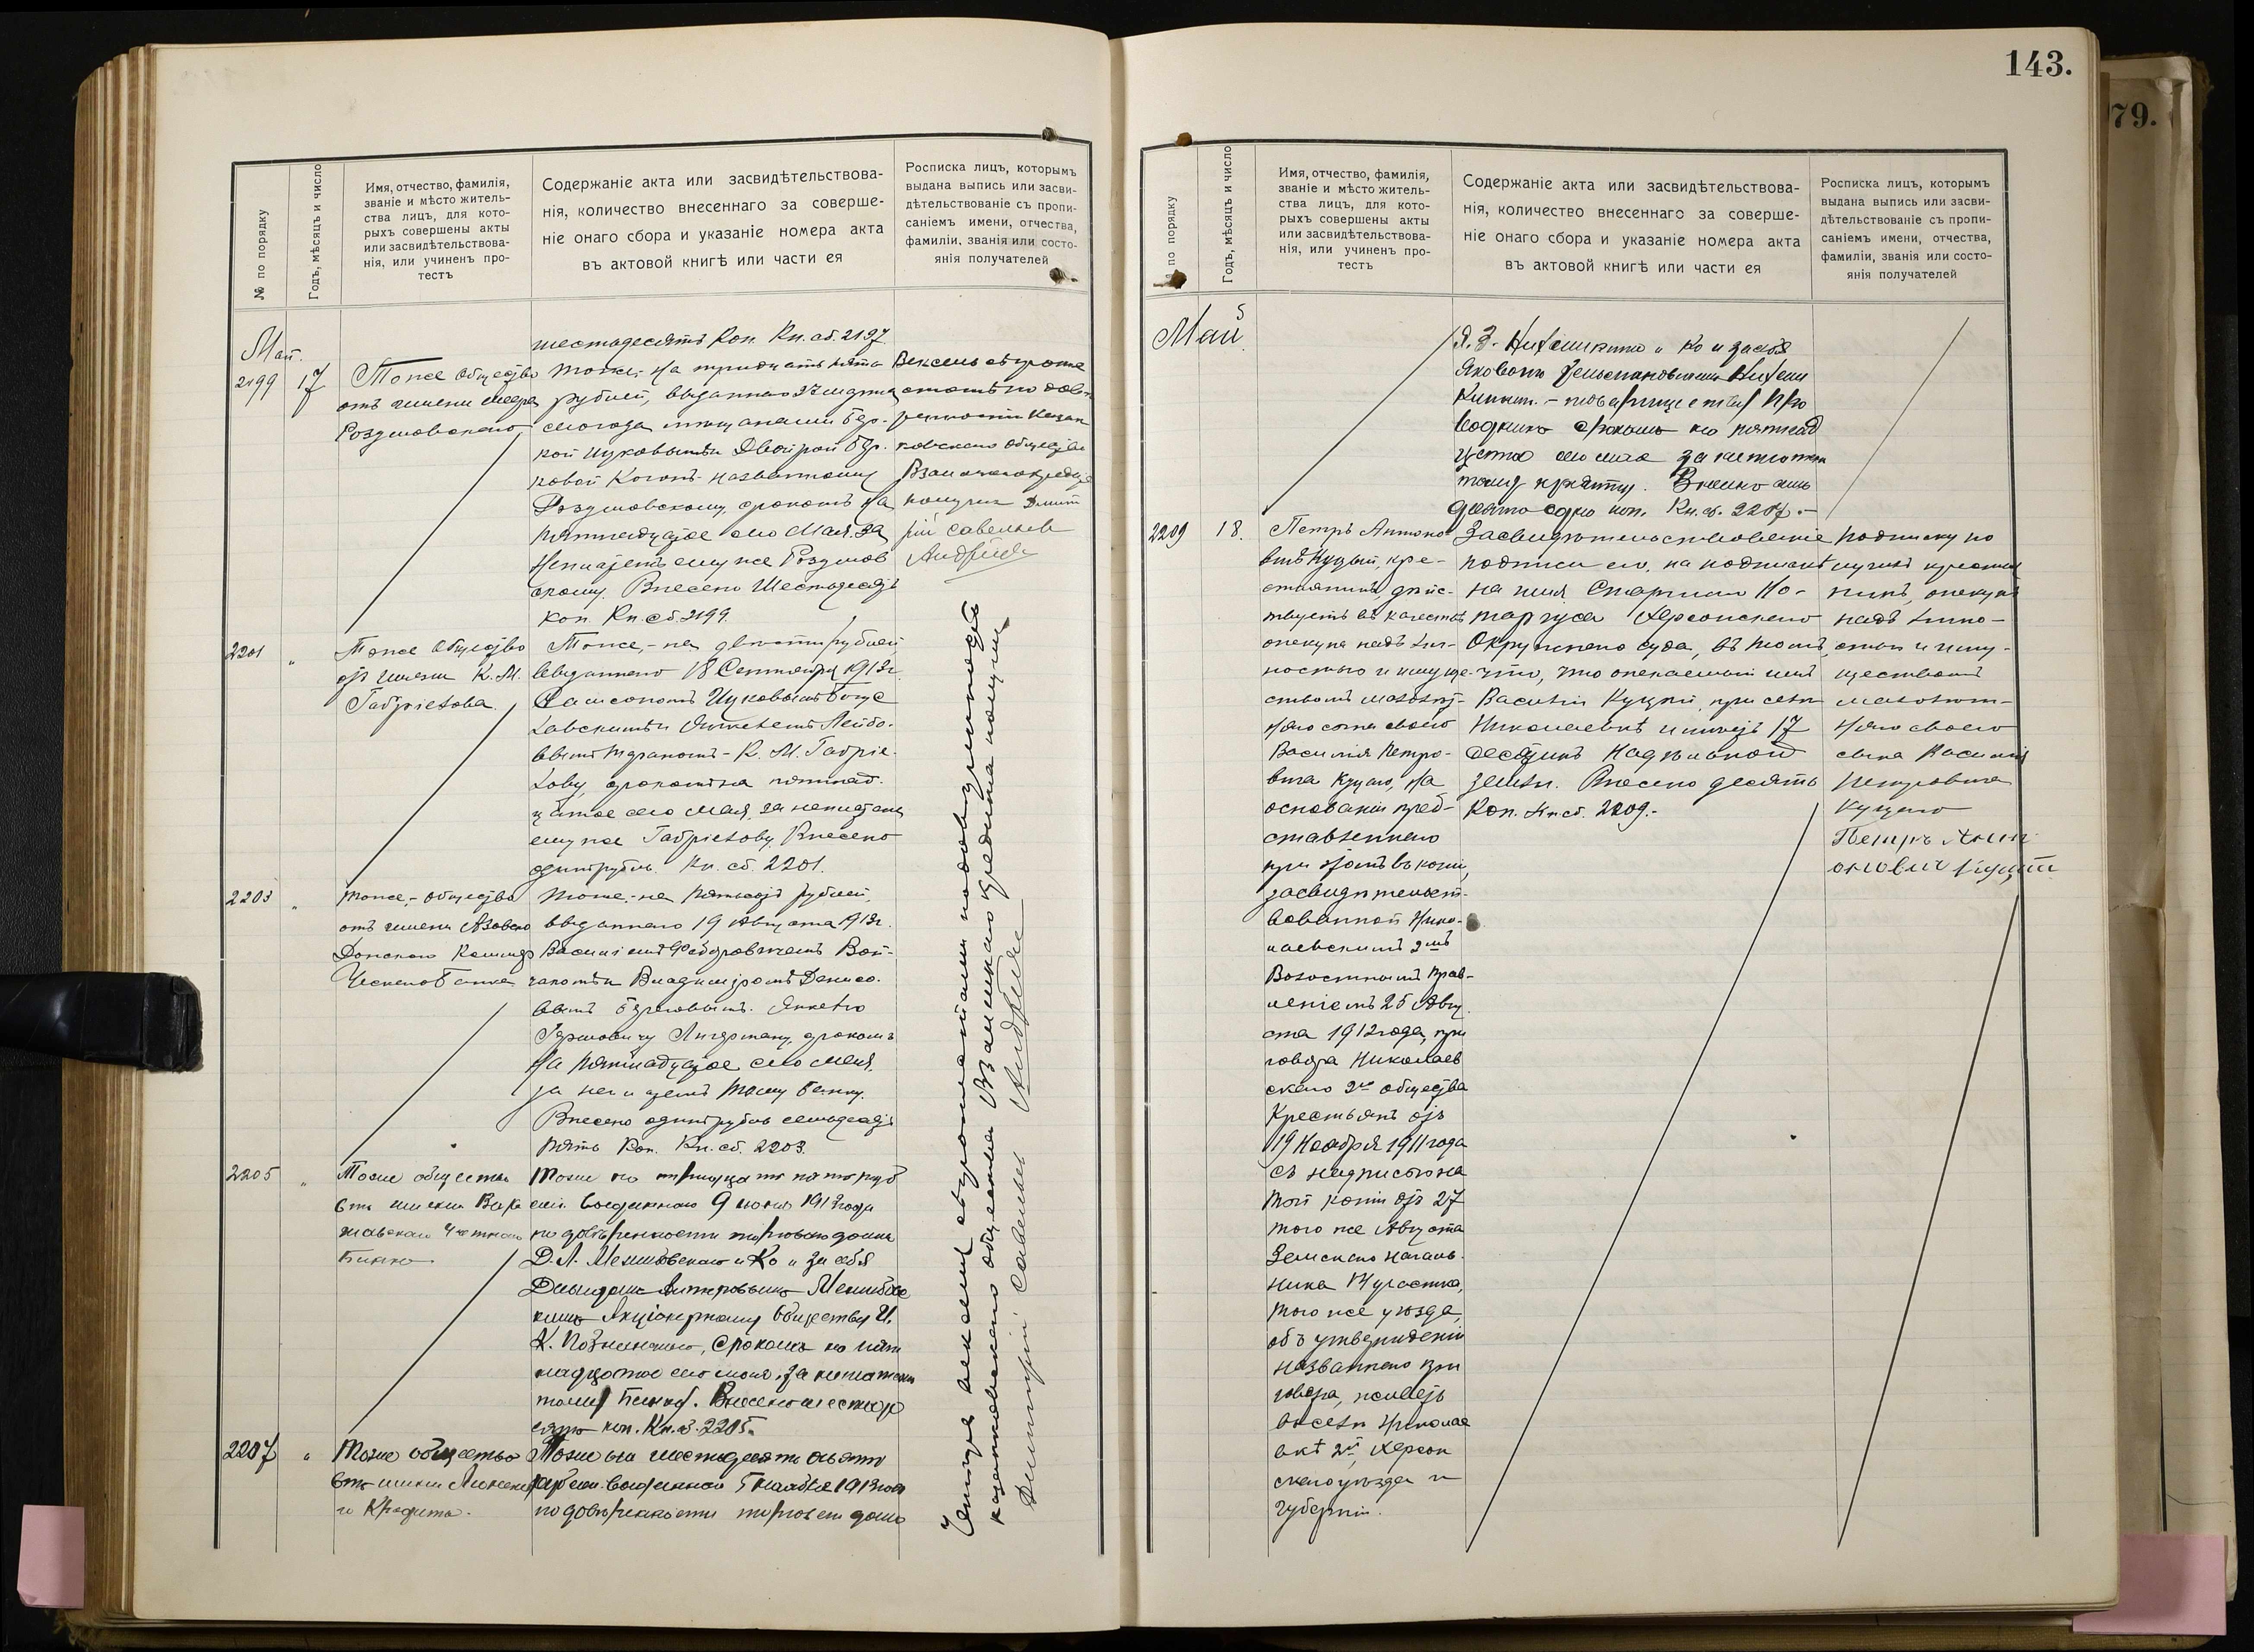 143.
79.
№ по порядку
Годъ, мѣсяцъ и число
Имя, отчество, фамилія,
званіе и мѣсто житель-
ства лицъ, для кото-
рыхъ совершены акты
или засвидѣтельствова-
нія, или учиненъ про-
тестъ
Содержаніе акта или засвидѣтельствова-
нія, количество внесеннаго за соверше-
ніе онаго сбора и указаніе номера акта
въ актовой книгѣ или части ея
Росписка лицъ, которымъ
выдана выпись или засви-
дѣтельствованіе съ пропи-
саніемъ имени, отчества,
фамиліи, званія или состо-
янія получателей
Май.
2199
17
Тоже общество
отъ имени
Роздымовскаго
шестьдесятъ коп. Кн. сб. 2197
Тоже, на тридцать пять
рублей, выданнаго 27 марта
сего года
Двойрой
ковой Коганъ
срокомъ на
пятнадцатое сего Мая, за
неплатежъ ему же
Внесено Шестьдесятъ
коп. Кн. сб. 2199.
Вексель съ прото
стомъ по дове
ренности Казан
ковскаго Общества
Взаимнаго кредита
получилъ Дмит
рій Савельевъ
Андреевъ
2201
"
Тоже общество
отъ имени К. М.
Габріелова
Тоже, на двѣсти рублей
выданнаго 18 Сентября 1913 г.
Самсономъ Ицковымъ
Лейбо-
К. М. Габріе-
лову, срокомъ на пятнад-
цатое сего мая, за неплатежъ
ему же Габріелову. Внесено
одинъ рубль. Кн. сб. 2201.
2203
"
Тоже, общество
отъ имени Азовско
Донскаго Коммер
ческаго Банка
Тоже, на пятьсотъ рублей,
выданнаго 19 Августа 1913 г.
Василіемъ Федоровичемъ Вой-
Владиміромъ Денисо-
вымъ
срокомъ
на пятнадцатое сего мая,
за неплатежъ тому Банку.
Внесено одинъ рубль семьдесятъ
пять коп. Кн. сб. 2203.
2205
"
Тоже общество
отъ имени Вар
шавскаго Учетнаго
Банка
Тоже на тридцать пять руб
лей выданнаго 9 іюня 1913 года
по довѣренности торговаго дома
Д. Л. и Ко и за себя
Давидомъ
кимъ Акціонерному Обществу И.
К. Познанскаго, срокомъ на пят
надцатое сего мая, за неплатежъ
тому Банку. Внесено шестьде
сятъ коп. Кн. сб. 2205.
2207
"
Тоже общество
отъ имени
го Кредита.
Тоже на шестьдесятъ девять
рублей выданнаго 5 ноября 1913 года
по довѣренности торговаго дома
Четыре векселя съ протестами
казанковскаго общества Взаимнаго кредита получилъ
Дмитрій Савельевъ Андреевъ
№ по порядку
Годъ, мѣсяцъ и число
Имя, отчество, фамилія,
званіе и мѣсто житель-
ства лицъ, для кото-
рыхъ совершены акты
или засвидѣтельствова-
нія, или учиненъ про-
тестъ
Содержаніе акта или засвидѣтельствова-
нія, количество внесеннаго за соверше-
ніе онаго сбора и указаніе номера акта
въ актовой книгѣ или части ея
Росписка лицъ, которымъ
выдана выпись или засви-
дѣтельствованіе съ пропи-
саніемъ имени, отчества,
фамиліи, званія или состо-
янія получателей
Май
и Ко и за себя
Яковомъ
товариществу Про
водникъ срокомъ на пятнад
цатое сего мая за неплатежъ
тому кредиту. Внесено
девяносто одна коп. Кн. сб. 2207.
2209
18.
Петръ Антоно
вичъ Куцый, кре-
стьянинъ, дѣйс-
твуетъ въ качествѣ
опекуна надъ лич-
ностью и имуще-
ствомъ малолѣт-
няго сына своего
Василія Петро-
вича Куцаго, на
основаніи пред-
ставленнаго
при этомъ въ копіи,
засвидѣтельст-
вованной Нико-
лаевскимъ 2мъ
Волостнымъ Прав-
леніемъ 25 Авгу-
ста 1912 года, при
говора Николаев
скаго 2го общества
Крестьянъ отъ
19 Ноября 1911 года
съ надписью на
той копіи отъ 27
того же Августа
Земскаго началь-
ника участка,
того же уѣзда,
объ утвержденіи
названнаго при
говора, живетъ
въ селѣ Николае
вкѣ 2й, Херсон
скаго уѣзда и
губерніи.
Засвидѣтельствованіе
подписи его, на подпискѣ
на имя Старшаго Но-
таріуса Херсонскаго
Окружнаго суда, въ томъ,
что, что опекаемый имъ
Василій Куцый, при селѣ
Николаевкѣ имѣетъ 17
десятинъ Надѣльной
земли. Внесено десять
Коп. Кн. сб. 2209.-
Подписку по
лучилъ крестья
нинъ, опекунъ
надъ лично-
стью и иму-
ществомъ
малолѣт-
няго своего
сына Василія
Петровича
Куцаго
Петръ Антон
овичъ Куцый